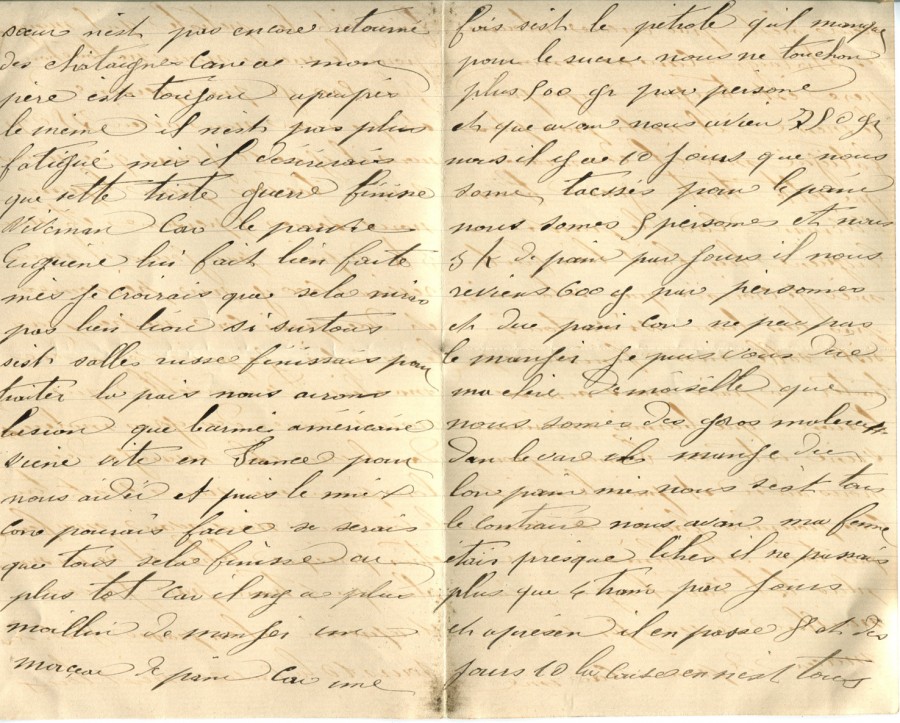 sœur n'est pas encore retourné
des chataigne Caneda mon
pere est toujour apeupres
le meme il n'est pas plus
fatigué mes il désirerais
que sette triste guerre finisse
car le pauvre
lui fait bien faute
mes je croirais que sela
pas bien lion si surtous
sest salle russe finissais par
traiter la pais nous avons
que larmée américaine
viene vite en France pour
nous aider et puis le mieux
pourais faire se serais
que tous sela finisse au
plus tot Car il ny a plus
de manger un
morceau de pain Car une
fois sest le pétrole qu'il manque
pour le sucre nous ne touchon
plus 500 gr par persone
et que avan nous avien 750 gr
nous il y a 10 jours que nous
some taessés pour le pain
nous somes 5 persones et nous
3 k de pain par jours il nous
reviens 600 g par persones
et due pain con ne peu pas
le manger je puis vous dire
ma chere demoiselle que
nous somes des gros
dan le var il mange du
bon pain mes nous sest tous
le contraire nous avan ma feme
etais presque libre il ne passais
plus que 4 train par jours
et apresen il en passe 8 et des
jours 10 la cause en nest tous